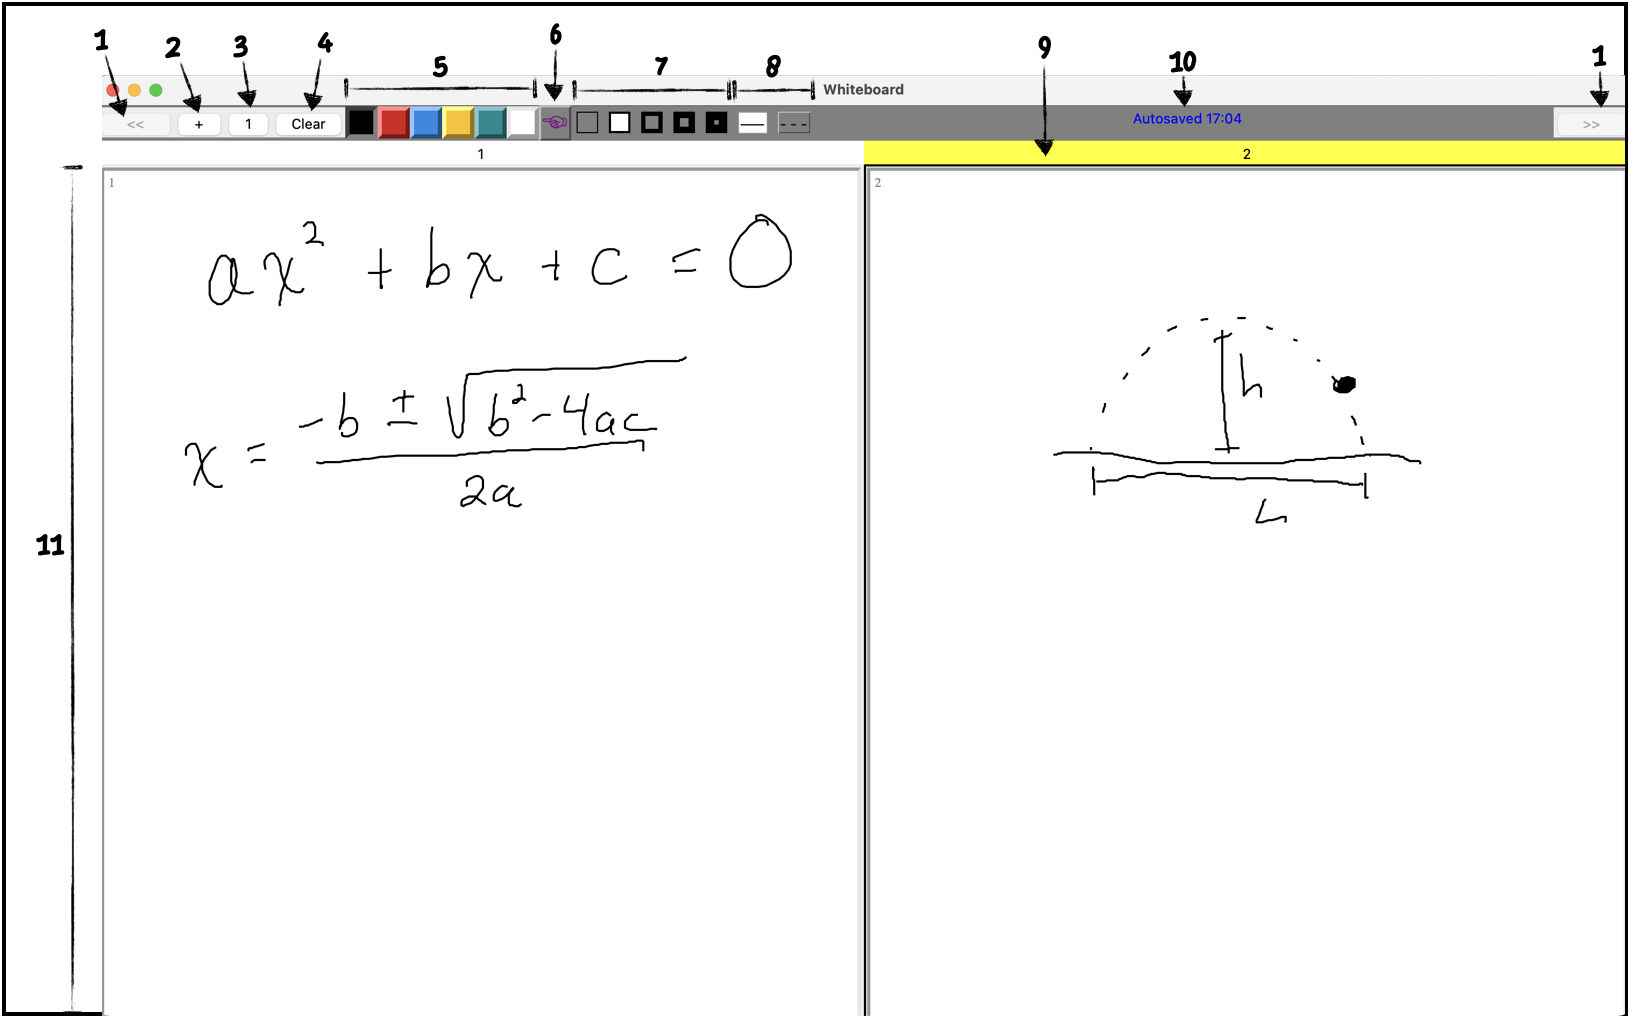 1 2 3 4 5 6 7 8 9 10 1
Whiteboard
<< + 1 Clear --- Autosaved 17:04 >>
1 2
1 2
ax² + bx + c = 0
x = -b ± √b² - 4ac
2a
h
L
11